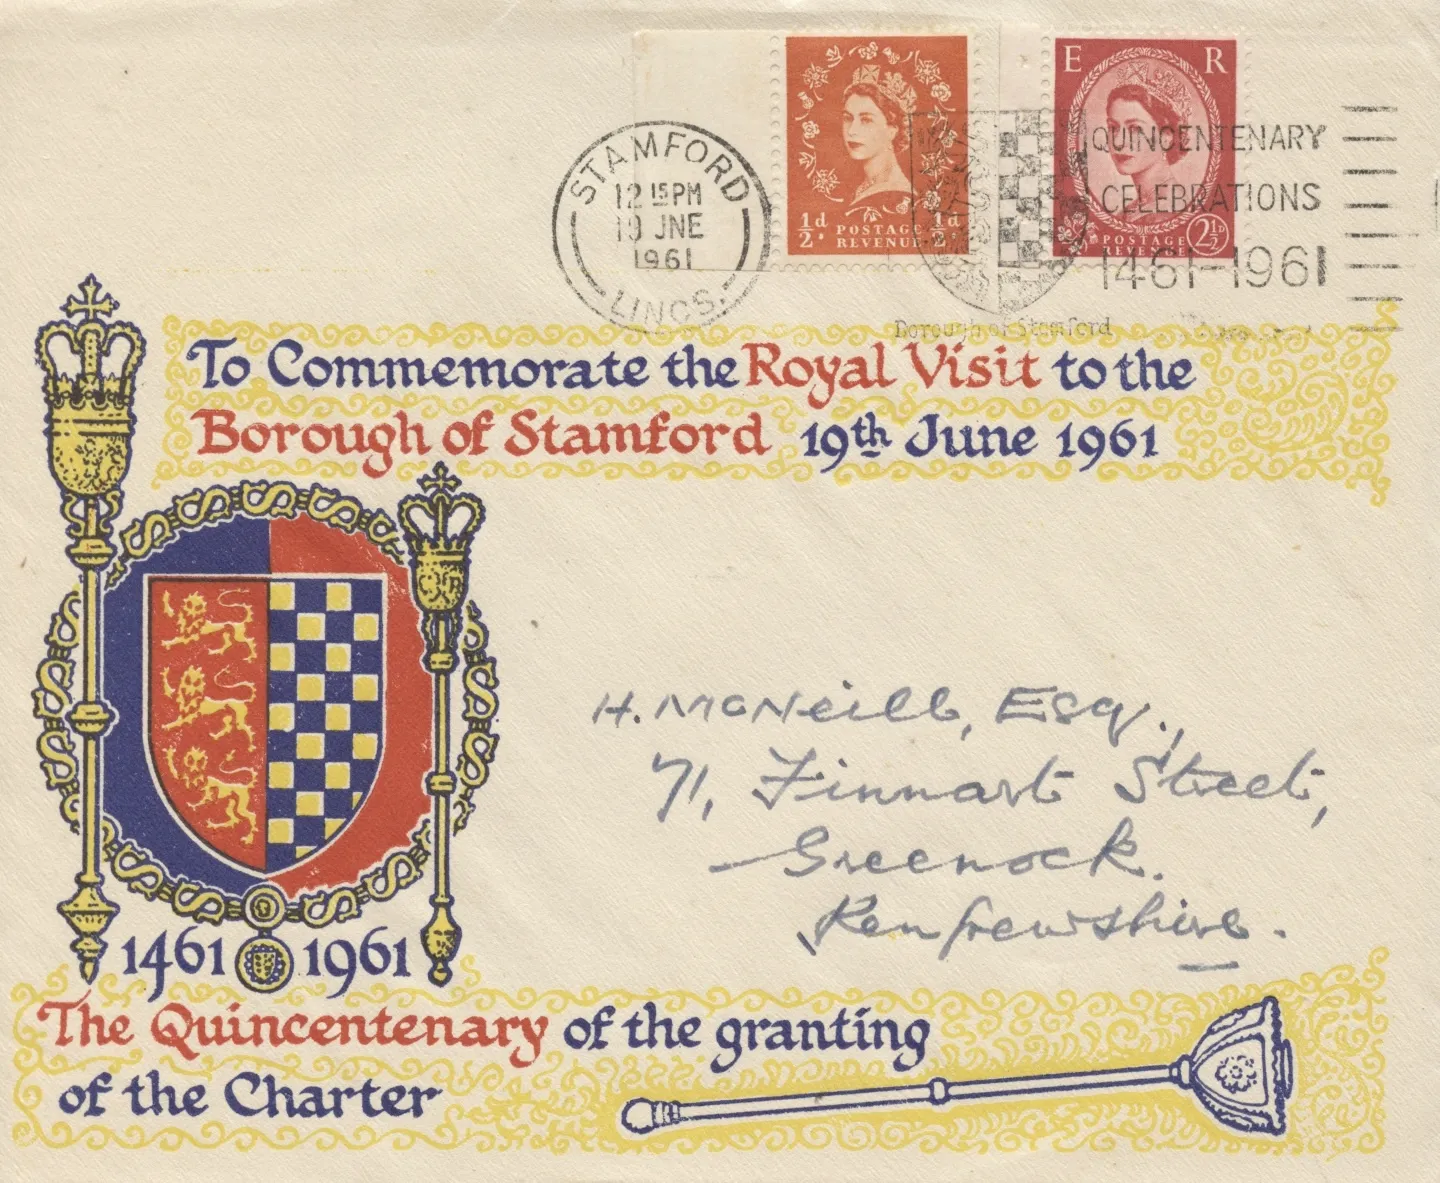 E R
½d. POSTAGE REVENUE ½d.
POSTAGE REVENUE 2½D
STAMFORD
12 15PM
19 JNE
1961
LINCS.
QUINCENTENARY
CELEBRATIONS
1461-1961
Borough of Stamford
To Commemorate the Royal Visit to the
Borough of Stamford 19th June 1961
H. McNeill, Esq.,
71, Finnart Street,
Greenock.
Renfrewshire.
1461 1961
The Quincentenary of the granting
of the Charter